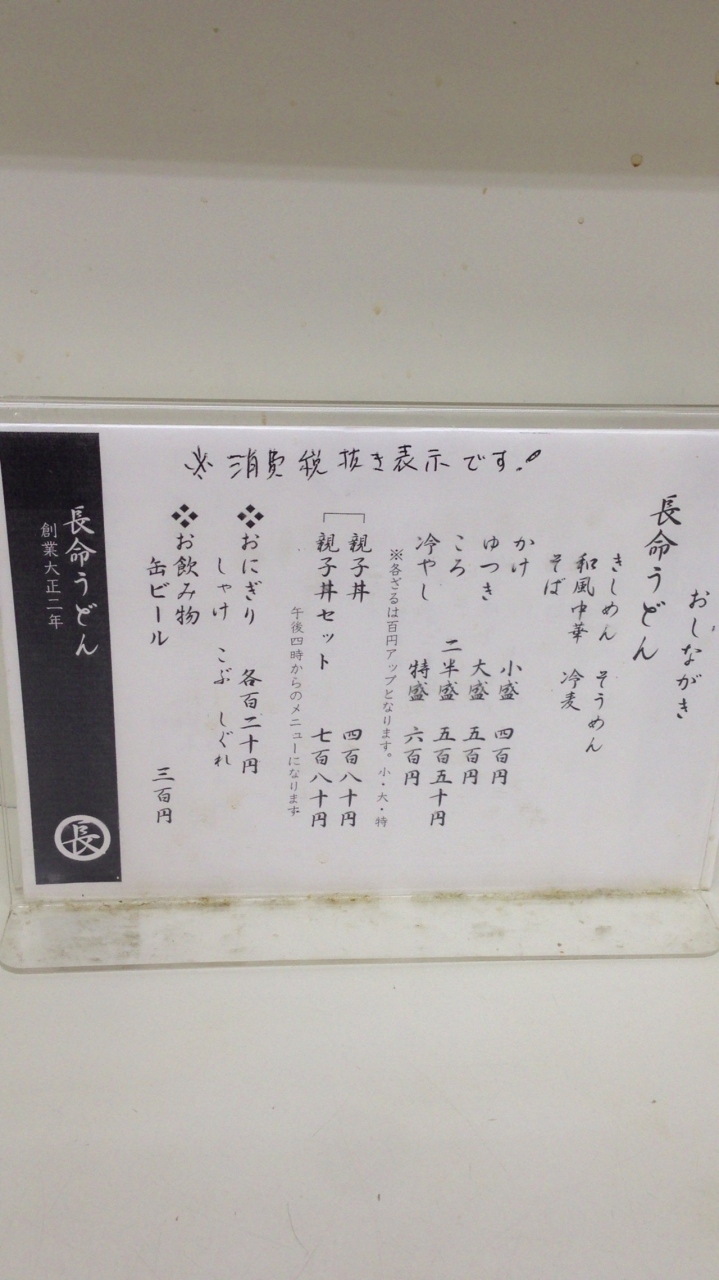 ※ 消費税抜き表示です!
おしながき
長命うどん
きしめん そうめん
和風中華 冷麦
そば
かけ 小盛 四百円
ゆつき 大盛 五百円
ころ 二半盛 五百五十円
冷やし 特盛 六百円
※各ざるは百円アップとなります。小・大・特
親子丼 四百八十円
親子丼セット 七百八十円
午後四時からのメニューになります
❖おにぎり 各百二十円
しゃけ こぶ しぐれ
❖お飲み物
缶ビール 三百円
長命うどん
創業大正二年
長